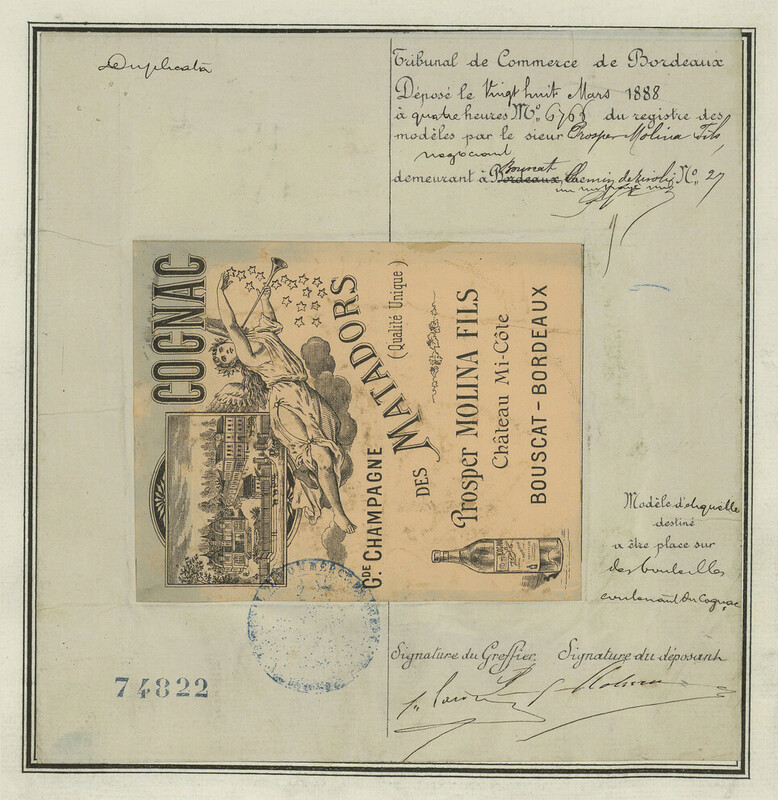 Duplicata
Tribunal de Commerce de Bordeaux
Déposé le Vingt huit Mars 1888
à quatre heures No. du registre des
modèles par le sieur Prosper Molina Fils,
negociant
Bouscat
demeurant à Bordeaux, Chemin No. 27
COGNAC
Gde. CHAMPAGNE
DES MATADORS
(Qualité Unique)
Prosper MOLINA FILS
Château Mi-Côte
BOUSCAT - BORDEAUX
Modèle d'etiquette
destiné
a être place sur
des bouteilles
contenant du Cognac
COMMERCE DE
74822
Signature du Greffier. Signature du déposant
Molina